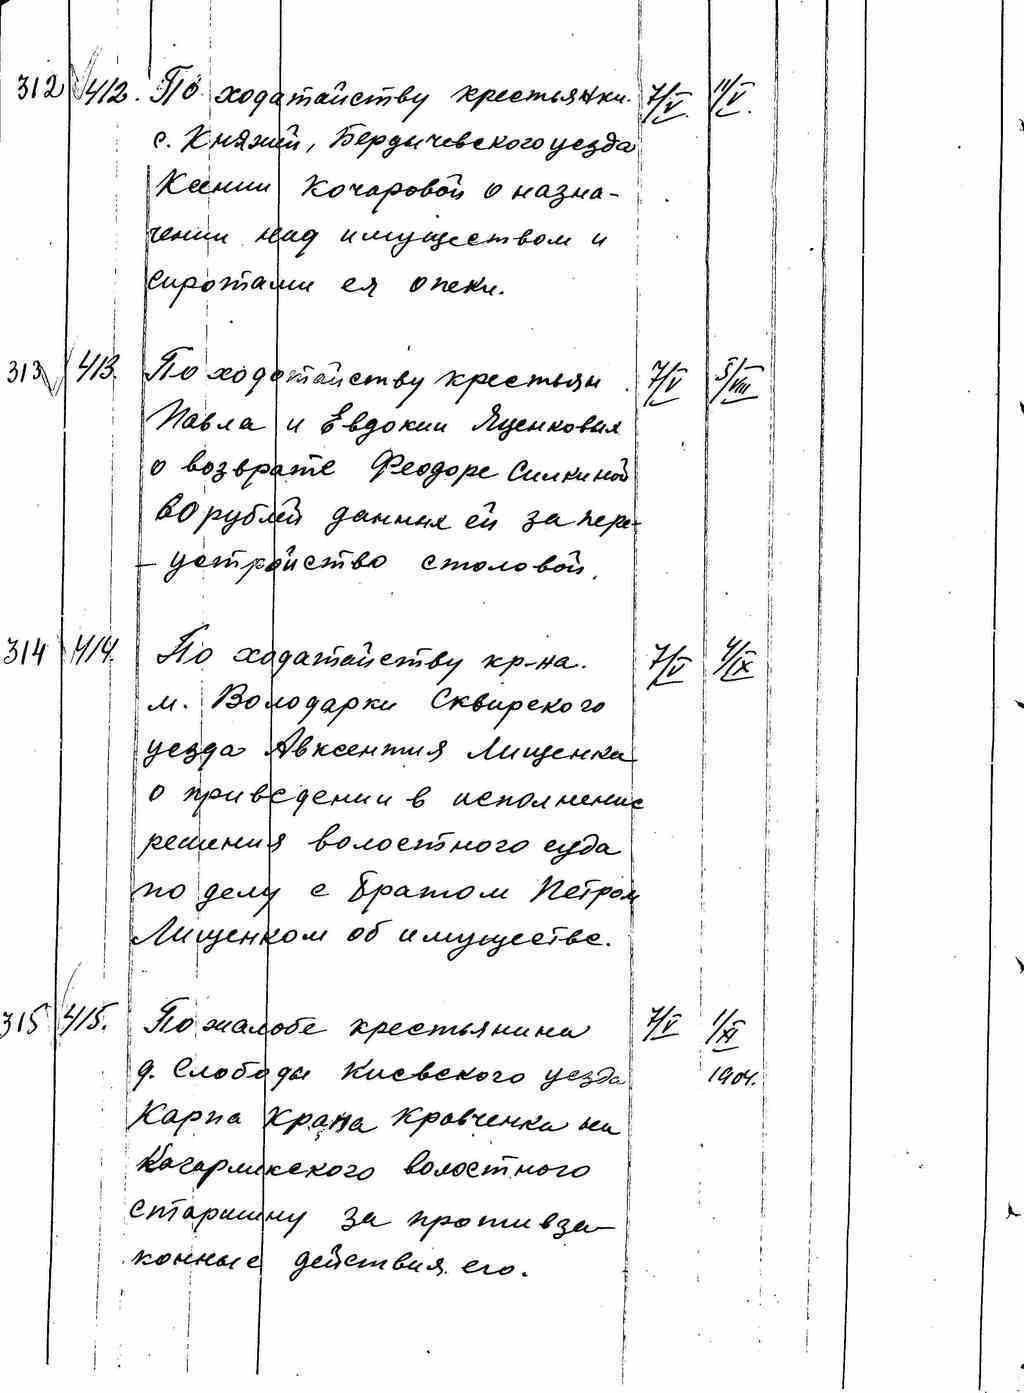 312 412. По ходатайству крестьянки 7/V. 11/V.
с. Княжей, Бердычевского уезда
Ксении Кочаровой о назна-
чении над имуществом и
сиротами ея опеки.
313 413. По ходатайству крестьян 7/V 5/VIII
Павла и Евдокии Яценковых
о возврате Феодоре Силкиной
80 рублей данных ей за пере-
- устройство столовой.
314 414. По ходатайству кр-на. 7/V 4/IX
м. Володарки Сквирского
уезда Авксентия Лищенка
о приведении в исполнение
решения волостного суда
по делу с братом Петром
Лищенком об имуществе.
315 415. По жалобе крестьянина 7/V 1/XI
д. Слободы Киевского уезда 1904.
Карпа Крапа Кравченка на
Кагарлыкского волостного
старшину за противза-
конные действия его.